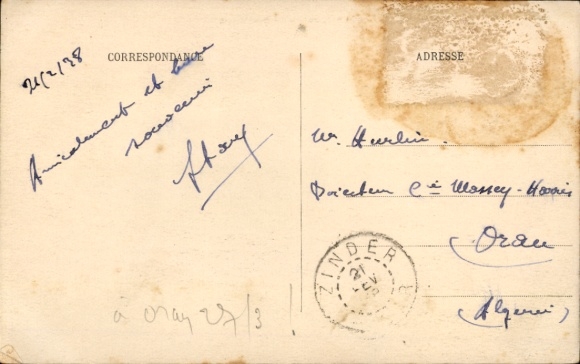 CORRESPONDANCE
ADRESSE
21/2/28
Amicalement et bonne
souvenir
M. Hurlin.
Directeur Cie Massey-Harris
Oran
(Algérie)
ZINDER
21
à Oran 27/3 !